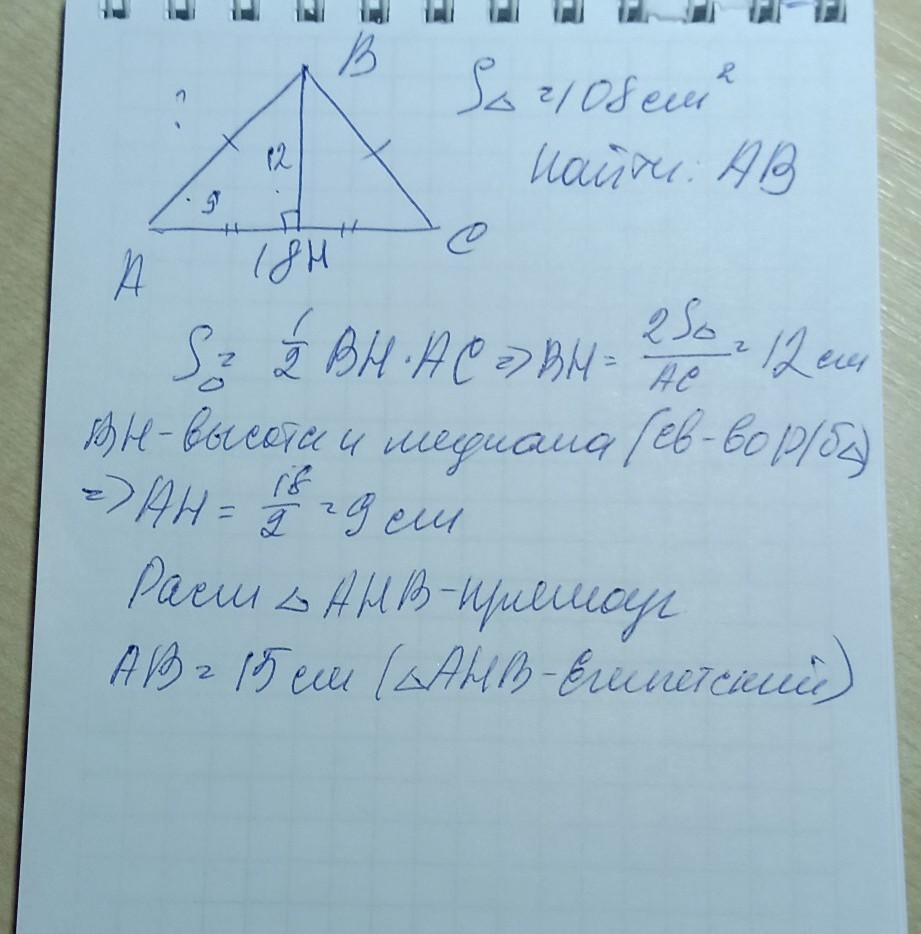 B
S△ = 108 см²
?
12
Найти: AB
9
A
18
H
C
S△ = 1/2 BH · AC => BH = 2S△/AC = 12 см
BH - высота и медиана (св-во р/б△)
=> AH = 18/2 = 9 см
Расм △ AHB - прямоуг
AB = 15 см (△AHB - египетский)